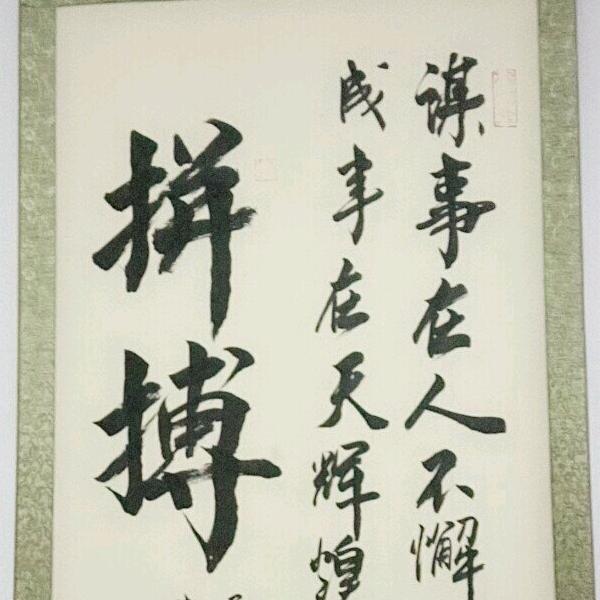 谋事在人不懈
成事在天辉煌
拼搏